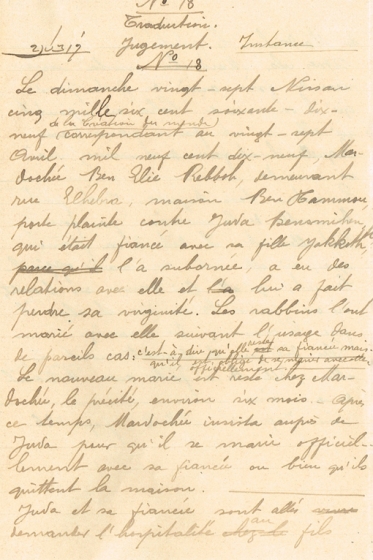 No 18
Traduction.
Jugement. Instance
No 18
Le dimanche vingt-sept Nissan
cinq mille six cent soixante-dix-
de la création du monde
neuf correspondant au vingt-sept
Avril mil neuf cent dix-neuf, Mar-
dochée Ben Elie Rebboh, demeurant
rue maison Ben Hammou,
porte plainte contre Juda
qui était fiancé avec sa fille
parce qu'il l'a subornée, a eu des
relations avec elle et l'a lui a fait
perdre sa virginité. Les rabbins l'ont
marié avec elle suivant l'usage dans
de pareils cas, c'est-à-dire qu'elle sa fiancée mais
qu'il est obligé de
officiellement
Le nouveau marié est resté chez Mar-
dochée, le précité, environ six mois. Après
ce temps, Mardochée insista auprès de
Juda pour qu'il se marie officiel-
lement avec sa fiancée ou bien qu'ils
quittent la maison.
Juda et sa fiancée sont allés
demander l'hospitalité au fils